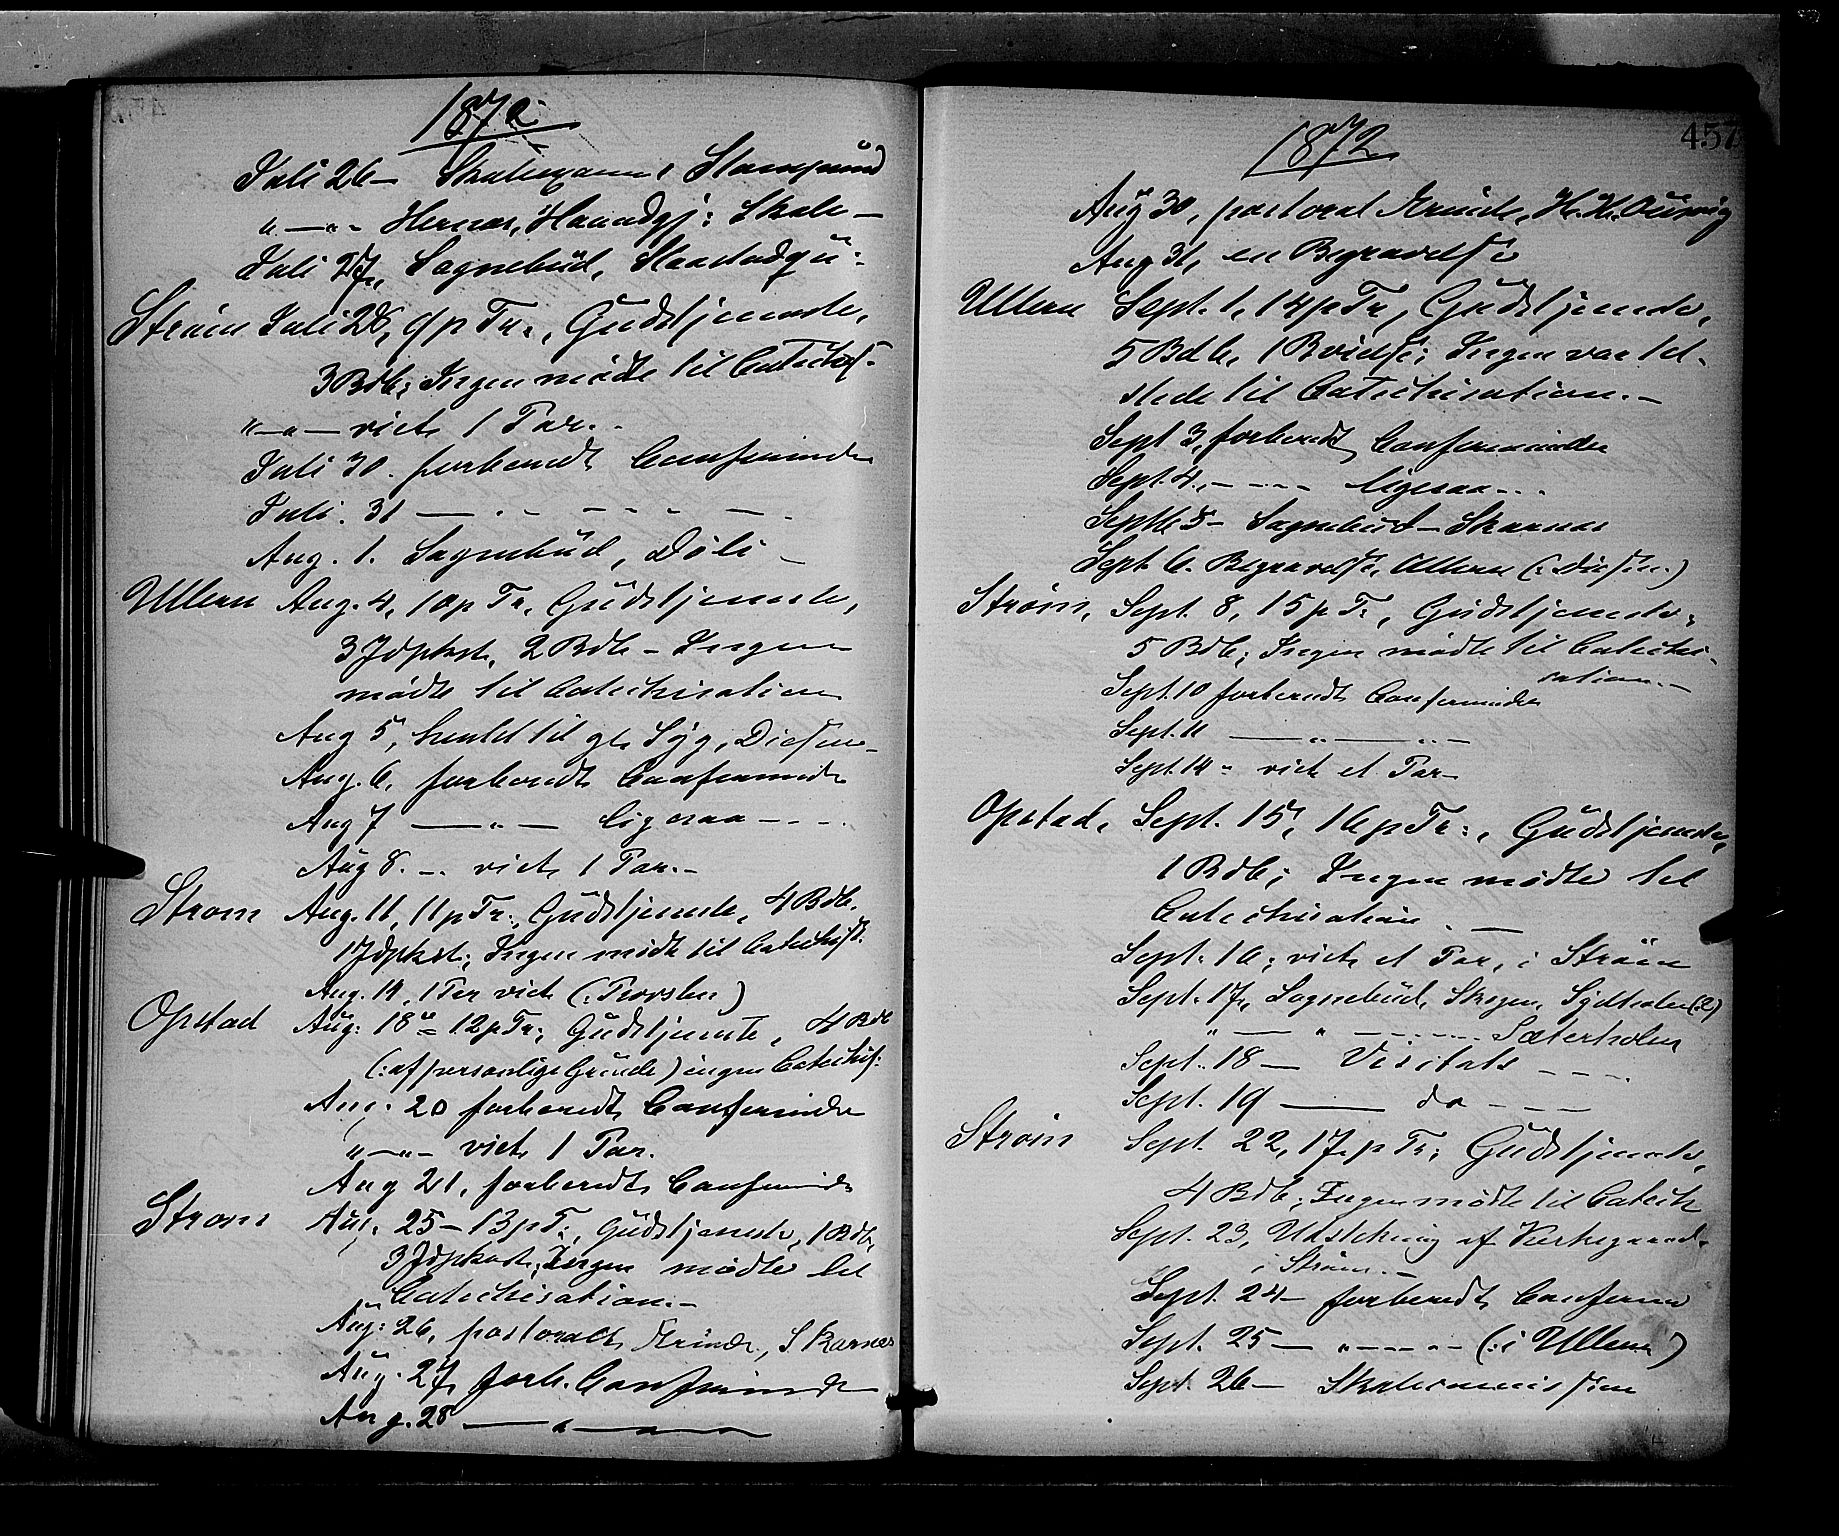 1872
Juli 26 –
" — " – Hernæs, Skole –
Juli 27, Sognebud,
Strøm Juli 28, 9 p Tr., Gudstjeneste,
3 Bdb; Ingen mødte til Catechis.
" — " — viet 1 Par. –
Juli 30. forberedt Confirmander
Juli. 31 — " – – – – –
Aug. 1. Sognebud, Døli –
Ullern Aug. 4, 10 p Tr., Gudstjeneste,
2 Bdb – Ingen
mødte til Catechisation
Aug 5, hentet til Syg,
Aug. 6, forberedt Confirmander
Aug 7 — " — ligesaa – – – –
Aug 8. – viet 1 Par. –
Strøm Aug. 11, 11 p Tr., Gudstjeneste, 4 Bdb,
Ingen mødte til Catechis.
Aug. 14, 1 Par viet
Opstad Aug: 18 – 12 p Tr; Gudstjeneste, 4 Bdb
(: af personlige Grunde) ingen Catechis:
Aug: 20 forberedt Confirmander
" — " – viet 1 Par.
Aug 21, forberedt Confirmander
Strøm Aug. 25 – 13 p Tr., Gudstjeneste, 1 Bdb,
Ingen mødte til
Catechisation. –
Aug: 26, pastoralt Ærinde, Skarnæs
Aug. 27, forb. Confirmander
Aug. 28 — " —
1872
457
Aug 30, pastoralt Ærinde,
Aug 31, en Begravelse
Ullern Sept. 1, 14 p Tr, Gudstjeneste,
5 Bdb, Ingen var til-
stede til Catechisation. –
Sept 3, forberedt Confirmander
Sept. 4. – – – – ligesaa – – –
Sept 5 – Sognebud – Skarnæs
Sept 6. Begravelse, Ullern
Strøm, Sept. 8, 15 p Tr, Gudstjeneste,
5 Bdb; Ingen mødte til Catechi-
sation. –
Sept. 10 forberedt Confirmander
Sept. 11 — " — " –
Sept. 14 – viet et Par –
Opstad, Sept. 15, 16 p Tr:, Gudstjeneste,
1 Bdb; Ingen mødte til
Catechisation. —
Sept. 16, viet et Par, i Strøm
Sept. 17, Sognebud,
" — " – – – – – Sæterholen
Sept. 18 — Visitats – – – –
Sept. 19 — do – – –
Strøm Sept. 22, 17 p Tr; Gudstjeneste,
4 Bdb; Ingen mødte til Catech
Sept. 23, Udstikning af Kirkegaard
i Strøm. –
Sept. 24 – forberedt Confirm
Sept. 25 — " – – " – (: i Ullern)
Sept. 26 – Skolecommission